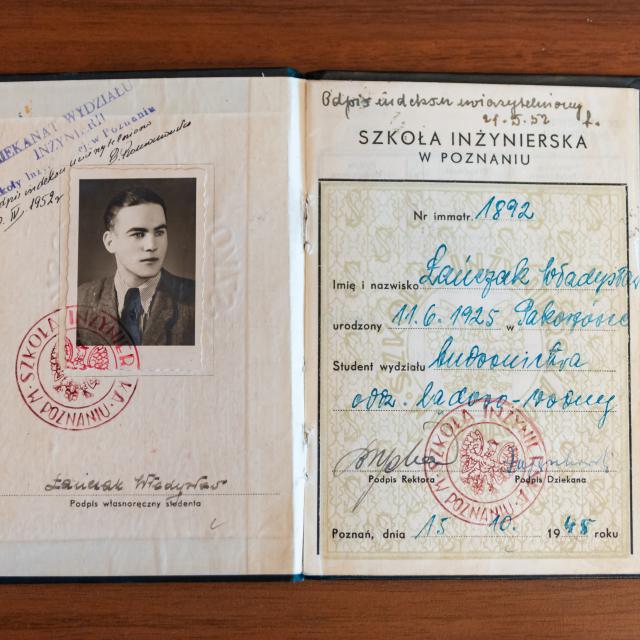 DZIEKANAT WYDZIAŁU
INŻYNIERII
w Poznaniu
odpis indeksu uwierzytelniono
IV 1952 r
SZKOŁA INŻYNIERSKA
W POZNANIU
Łańczak Władysław
Podpis własnoręczny studenta
Odpis indeksu uwierzytelniony
21.5.52
SZKOŁA INŻYNIERSKA
W POZNANIU
Nr immatr. 1892
Imię i nazwisko Łańczak Władysław
urodzony 11.6.1925 w
Student wydziału budownictwa
odz. lądowo-wodny
Podpis Rektora Podpis Dziekana
SZKOŁA INŻYNIERSKA
W POZNANIU
Poznań, dnia 15 10. 1948 roku